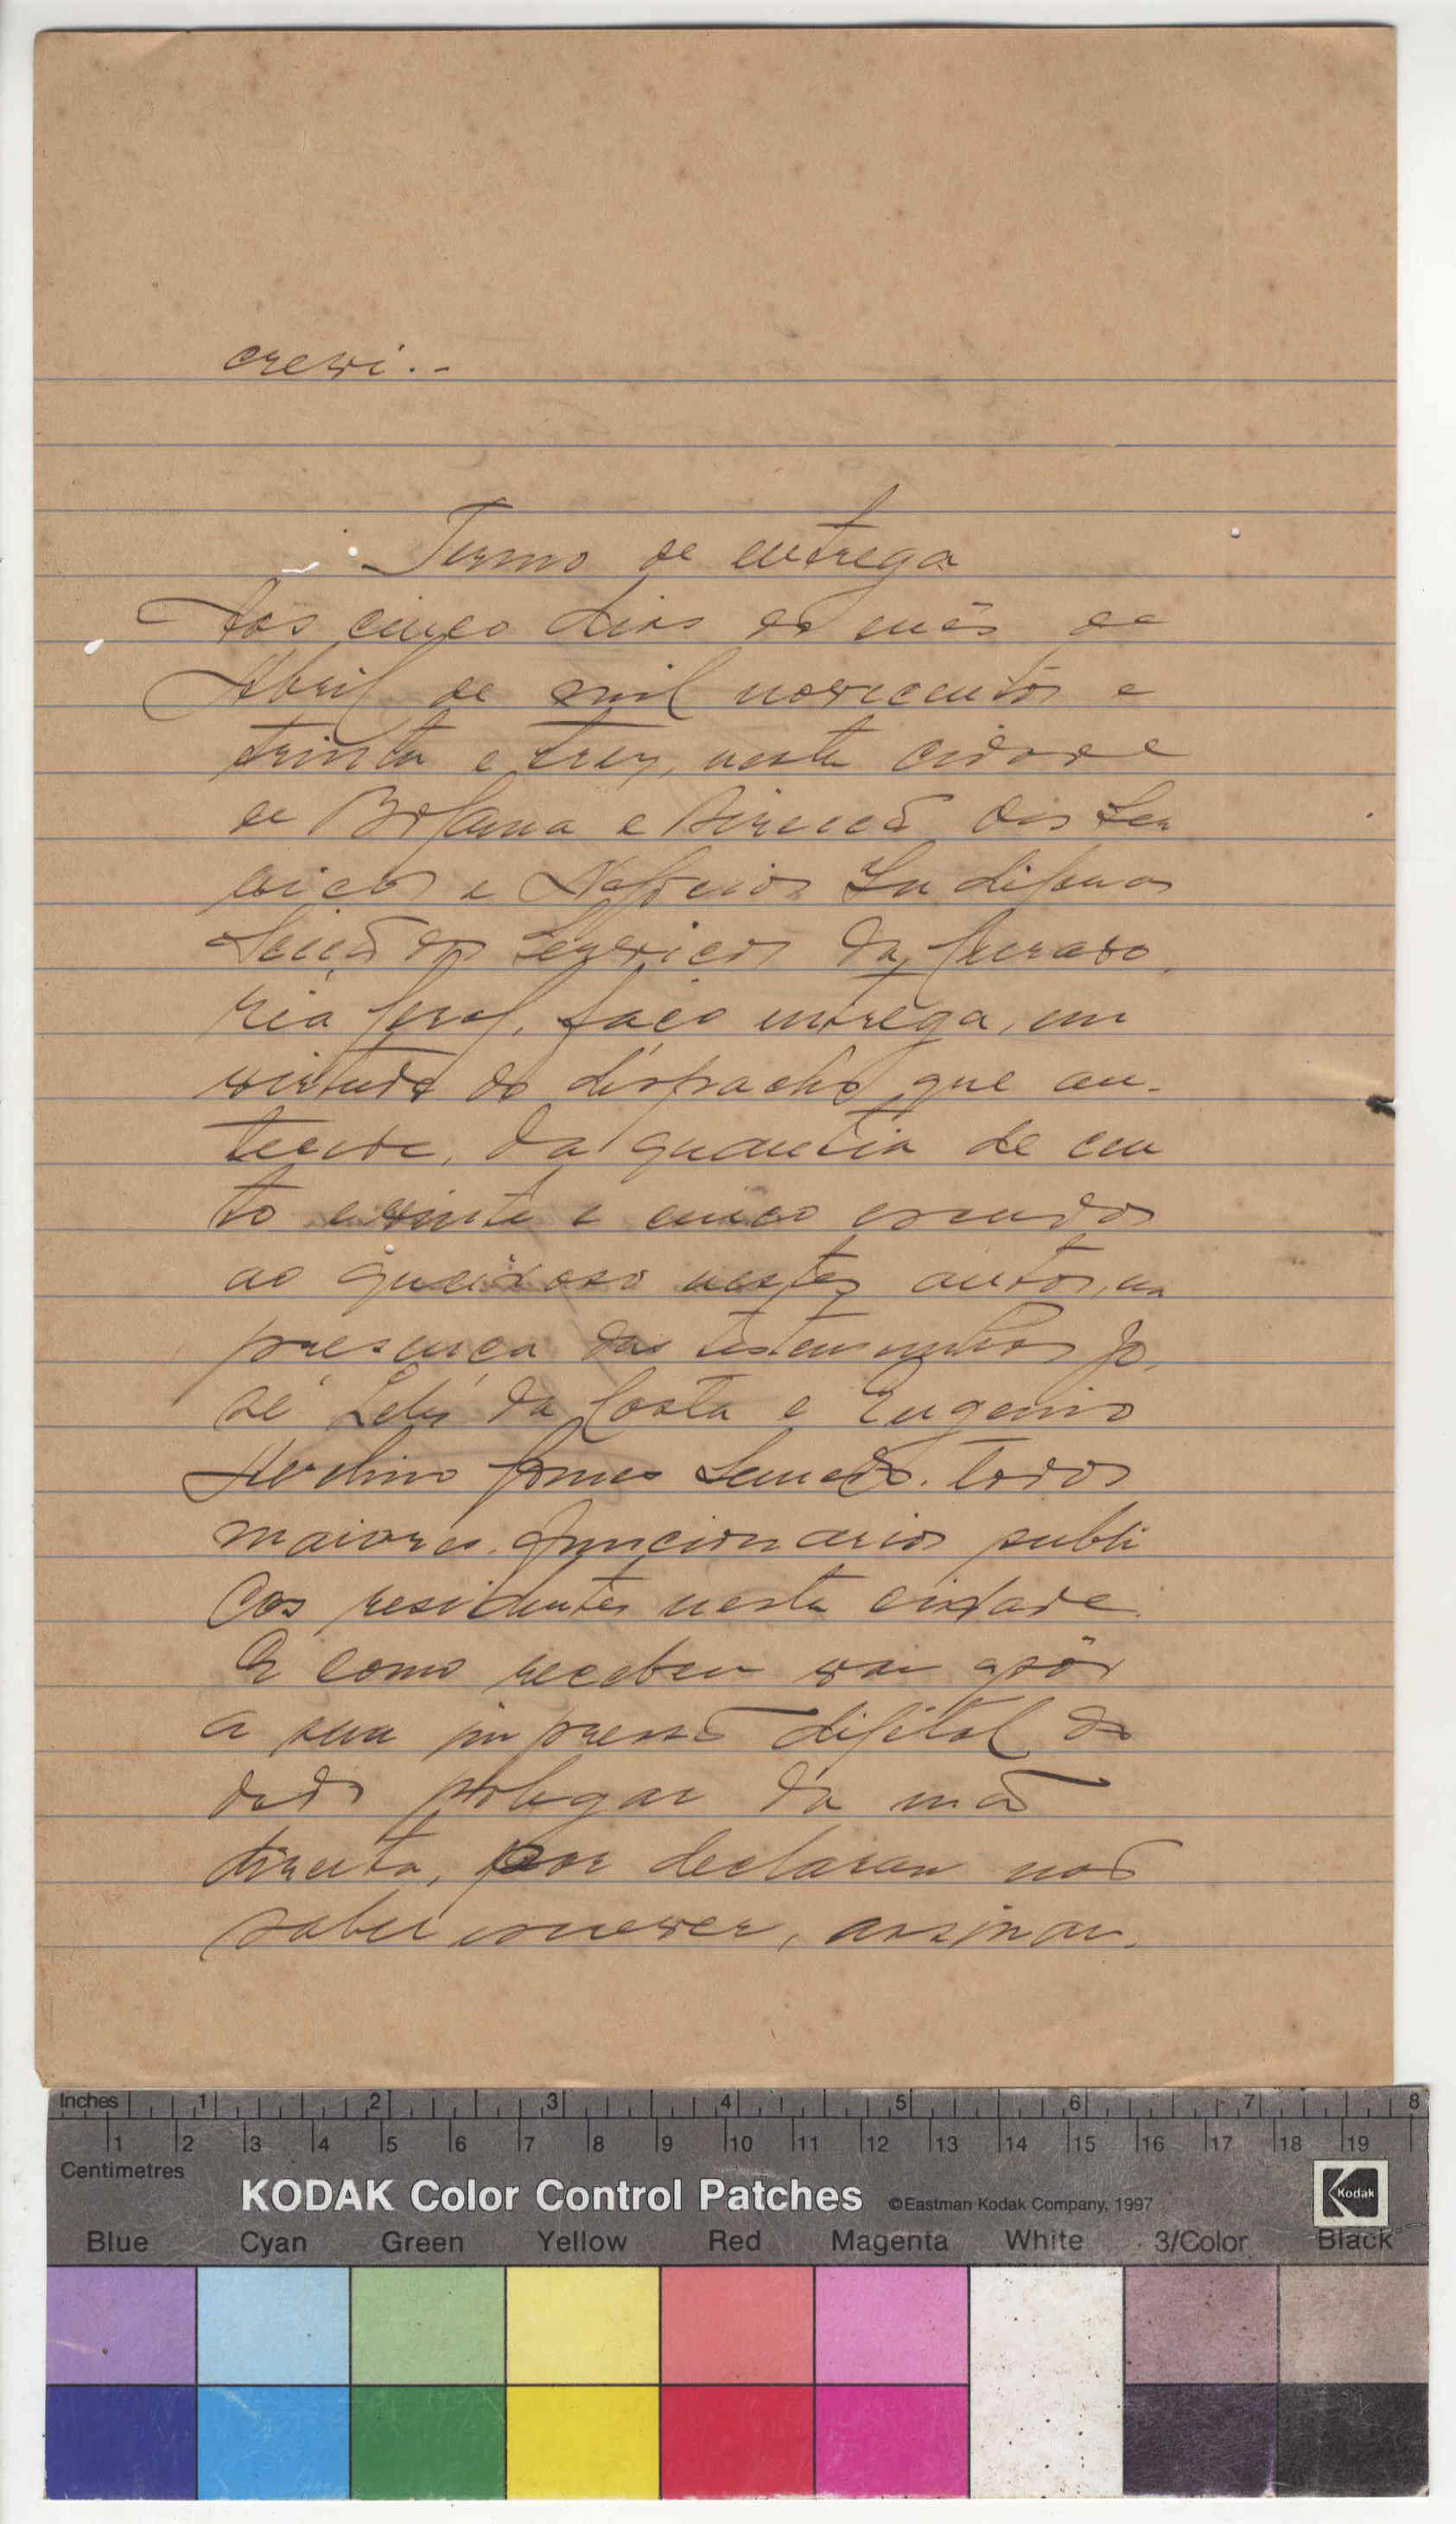 crevi..-
Termo de entrega
Aos cinco dias do mês de
Abril de mil novecentos e
trinta e trez, nesta cidade
de Bolama e Direcçã dos Ser
viços e Negocios Indigenas
Secçã dos Serviços da Curado
ria Geral, faço entrega, em
virtude do despacho que an-
tecede, da quantia de cen
to e vinte e cinco escudos
ao queixoso nestes autos, na
presença das testemunhas Jo-
sé da Costa e Eugenio
Gomes todos
maiores, funcionarios publi
cos residentes nesta cidade.
E como recebeu vai apôr
a sua impressã digital do
dedo polegar da mã
direita, por declarar não
saber escrever, assinan-
Inches 1 2 3 4 5 6 7 8
1 2 3 4 5 6 7 8 9 10 11 12 13 14 15 16 17 18 19
Centimetres
KODAK Color Control Patches ©Eastman Kodak Company, 1997 Kodak
Blue Cyan Green Yellow Red Magenta White 3/Color Black